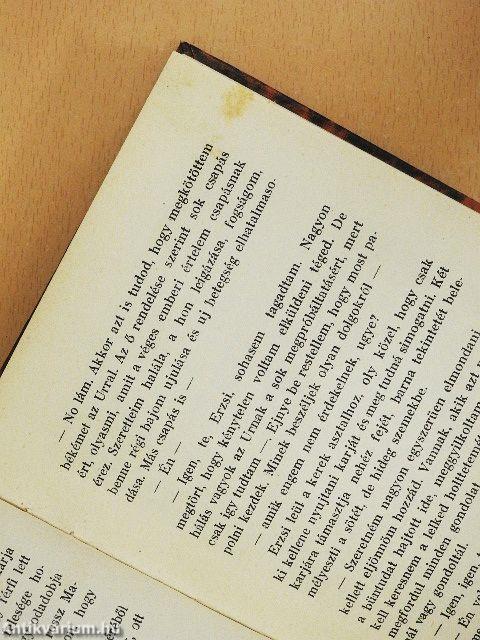 — No lám. Akkor azt is tudod, hogy megkötöttem
békémet az Urral. Az ő rendelése szerint sok csapás
ért, olyasmi, amit a véges emberi értelem csapásnak
érez. Szeretteim halála, a hon leigázása, fogságom,
benne régi bajom ujulása és új betegség elhatalmaso-
dása. Más csapás is —
— Én —
— Igen, te, Erzsi, sohasem tagadtam. Nagyon
megtört, hogy kénytelen voltam elküldeni téged. De
hálás vagyok az Urnak a sok megpróbáltatásért, mert
csak így tudtam —. Ejnye be restellem, hogy most pa-
polni kezdek. Minek beszéljek olyan dolgokról —
— amik engem nem érdekelnek, ugye?
Erzsi leül a kerek asztalhoz, oly közel, hogy csak
ki kellene nyujtani karját és meg tudná simogatni. Két
karjára támasztja nehéz fejét, barna tekintetét bele-
mélyeszti a sötét, de hideg szemekbe.
— Szeretném nagyon egyszerűen elmondani
kellett eljönnöm hozzád. Vannak, akik azt
a bűntudat hajtott ide, meggyilkoltam
kell keresnem a lelked holttetemét
megfordu minden gondolat
ál vagy gondoltál.
— Igen, igen,
Én
arja
férfi lett
hogy
ott
Antikvárium.hu